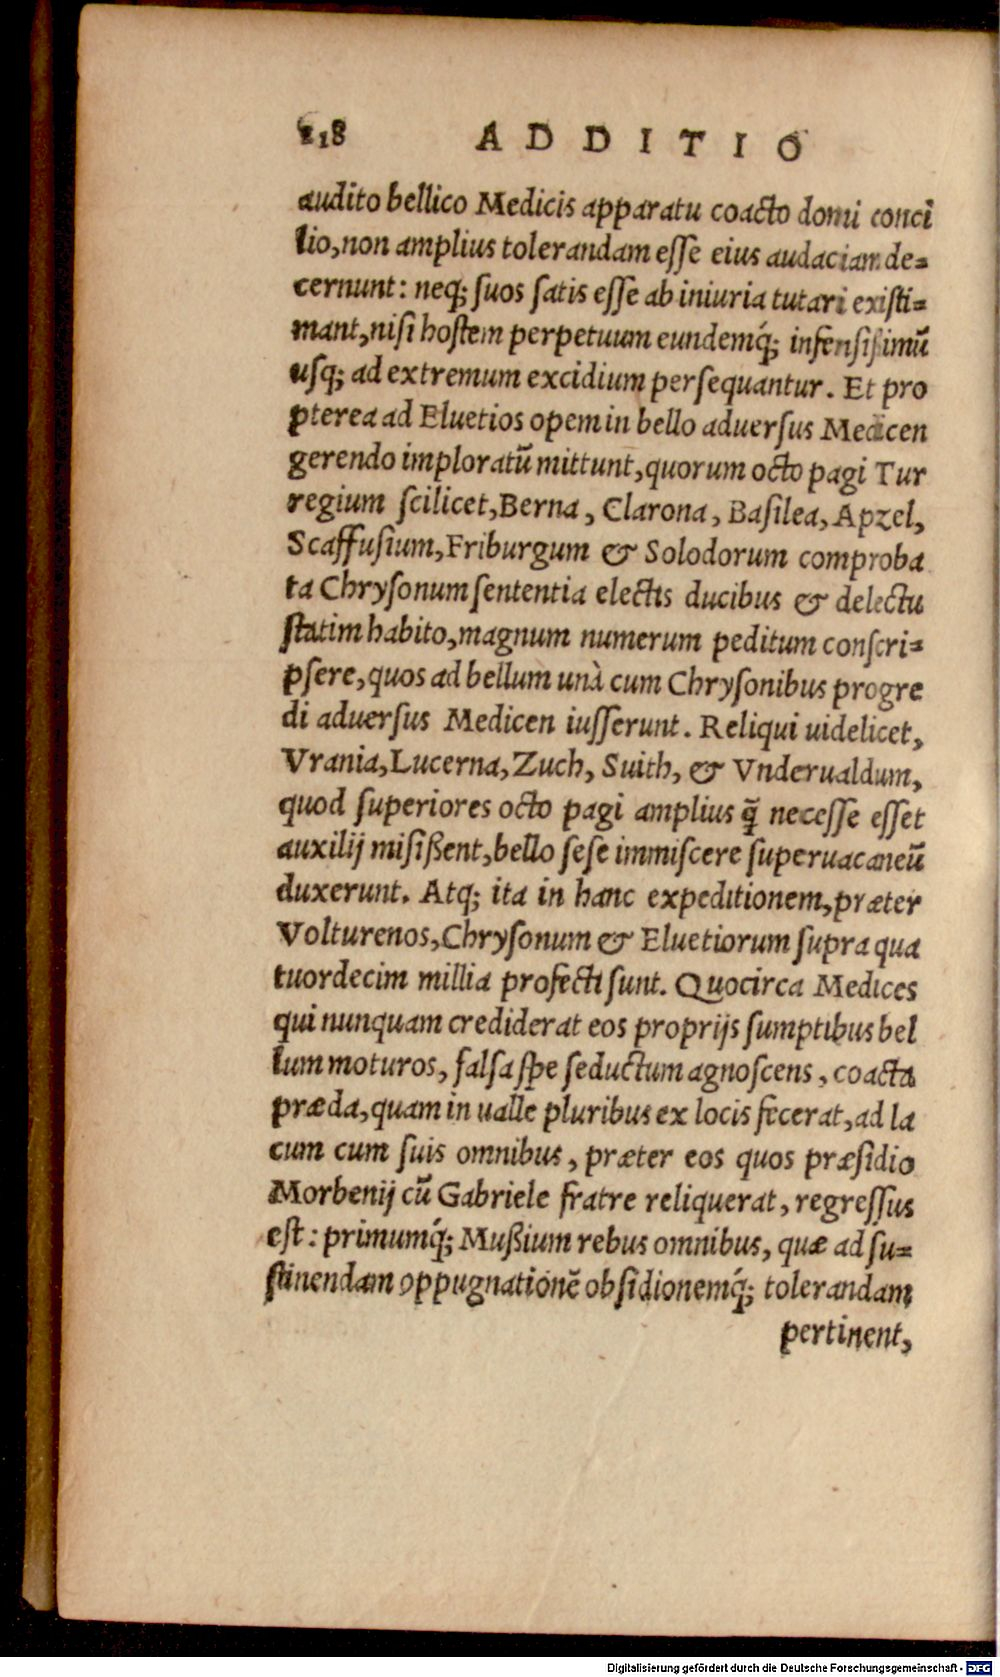 218 ADDITIO
audito bellico Medicis apparatu coacto domi conci
lio, non amplius tolerandam esse eius audaciam de=
cernunt: neq; suos satis esse ab iniuria tutari existi=
mant, nisi hostem perpetuum eundemq́; infensißimũ
usq; ad extremum excidium persequantur. Et pro
pterea ad Eluetios opem in bello aduersus Medicen
gerendo imploratũ mittunt, quorum octo pagi Tur
regium scilicet, Berna, Clarona, Basilea, Apzel,
Scaffusium, Friburgum & Solodorum comproba
ta Chrysonum sententia electis ducibus & delectu
statim habito, magnum numerum peditum conscri=
psere, quos ad bellum unà cum Chrysonibus progre
di aduersus Medicen iusserunt. Reliqui uidelicet,
Vrania, Lucerna, Zuch, Suith, & Vnderualdum,
quod superiores octo pagi amplius q̃ necesse esset
auxilij misißent, bello sese immiscere superuacaneũ
duxerunt. Atq; ita in hanc expeditionem, præter
Volturenos, Chrysonum & Eluetiorum supra qua
tuordecim millia profecti sunt. Quocirca Medices
qui nunquam crediderat eos proprijs sumptibus bel
lum moturos, falsa spe seductum agnoscens, coacta
præda, quam in ualle pluribus ex locis fecerat, ad la
cum cum suis omnibus, præter eos quos præsidio
Morbenij cũ Gabriele fratre reliquerat, regressus
est: primumq́; Mußium rebus omnibus, quæ ad su=
stinendam oppugnationẽ obsidionemq́; tolerandam
pertinent,
Digitalisierung gefördert durch die Deutsche Forschungsgemeinschaft - DFG